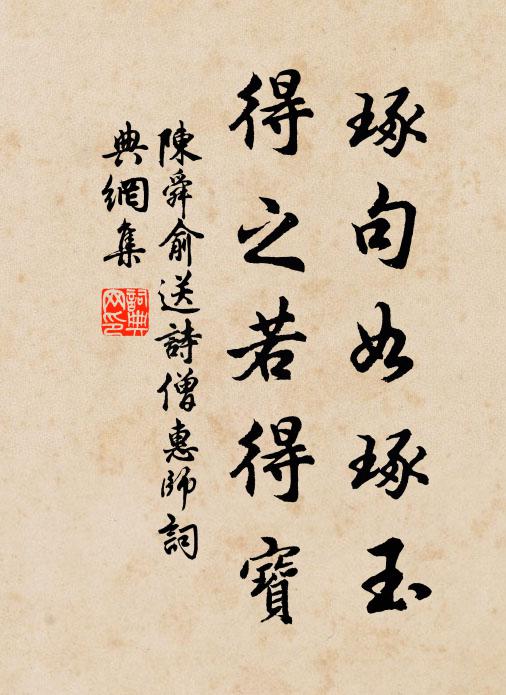 琢句如琢玉
得之若得寶
陳舜俞送詩僧惠師詞
典網集
詞典
网印